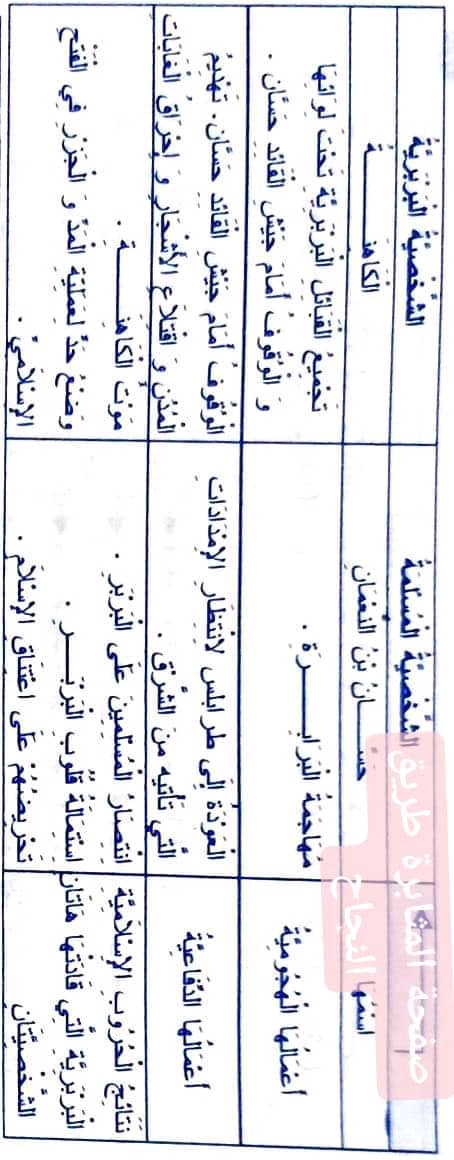 صفحة المثابرة طريق النجاح
الشَّخْصِيَّةُ الْمُسْلِمَةُ
الشَّخْصِيَّةُ الْبَرْبَرِيَّةُ
اسْمُهَا
حَسَّـــانُ بْنُ النُّعْمَانِ
الْكَاهِنَـــــــةُ
أَعْمَالُهَا الْهُجُومِيَّةُ
مُهَاجَمَةُ الْبَرَابِـــــرَةِ .
تَجْمِيعُ الْقَبَائِلِ الْبَرْبَرِيَّةِ تَحْتَ لِوَائِهَا
وَ الْوُقُوفُ أَمَامَ جَيْشِ الْقَائِدِ حَسَّان .
أَعْمَالُهَا الدِّفَاعِيَّةُ
الْعَوْدَةُ إِلَى طرابلس لِانْتِظَارِ الْإِمْدَادَاتِ
الَّتِي تَأْتِيهِ مِنَ الشَّرْقِ .
الْوُقُوفُ أَمَامَ جَيْشِ الْقَائِدِ حَسَّان. تَهْدِيمُ
الْمُدُنِ وَ اقْتِلَاعِ الْأَشْجَارِ وَ إِحْرَاقُ الْغَابَاتِ
نَتَائِجُ الْحُرُوبِ الْإِسْلَامِيَّةِ
الْبَرْبَرِيَّةِ الَّتِي قَادَتْهَا هَاتَانِ
الشَّخْصِيَّتَانِ
انْتِصَارُ الْمُسْلِمِينَ عَلَى الْبَرْبَرِ .
اسْتِمَالَةُ قُلُوبِ الْبَرْبَـــرِ .
تَحْرِيضُهُمْ عَلَى اعْتِنَاقِ الْإِسْلَامِ .
مَوْتُ الْكَاهِنَـــــةِ .
وَضْعُ حَدٍّ لِعَمَلِيَّةِ الْمَدِّ وَ الْجَزْرِ فِي الْفَتْحِ
الْإِسْلَامِيِّ .